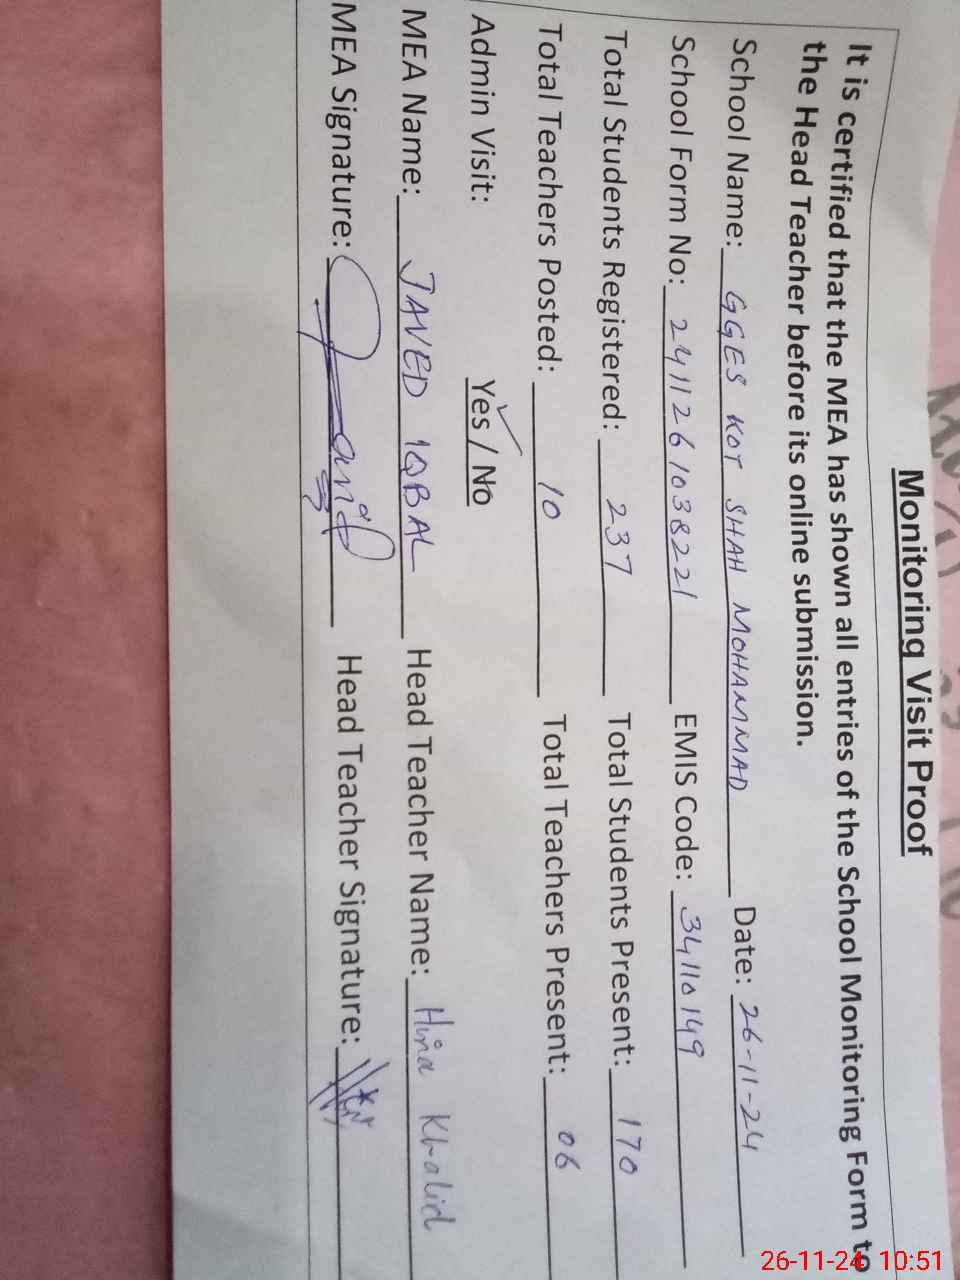 Monitoring Visit Proof
It is certified that the MEA has shown all entries of the School Monitoring Form to
the Head Teacher before its online submission.
School Name: GGES KOT SHAH MOHAMMAD Date: 26-11-24
School Form No: 2411261038221 EMIS Code: 34110149
Total Students Registered: 237 Total Students Present: 170
Total Teachers Posted: 10 Total Teachers Present: 06
Admin Visit: Yes / No
MEA Name: JAVED IQBAL Head Teacher Name: Hina Khalid
MEA Signature: Head Teacher Signature:
26-11-24 10:51